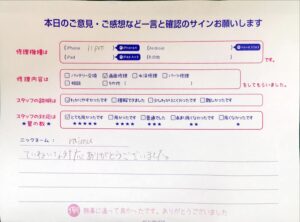 本日のご意見・ご感想など一言と確認のサインお願いします
修理機種は
iPhone 11 pro
Android
iPad
その他
です。
修理内容は
バッテリー交換 画面修理 水没修理 パーツ修理
相談 その他
をしてもらいました。
スタッフの説明は
わかりやすかったです 理解できました 少しわかりにくかったです 難しかったです
スタッフの対応は
★星の数★
とても良かったです 良かったです 普通でした あまり良くなかったです 良くなかったです
★★★★★ ★★★★ ★★★ ★★ ★
ニックネーム：
ありがとうございました。
修理に速って良かったです。ありがとうございました